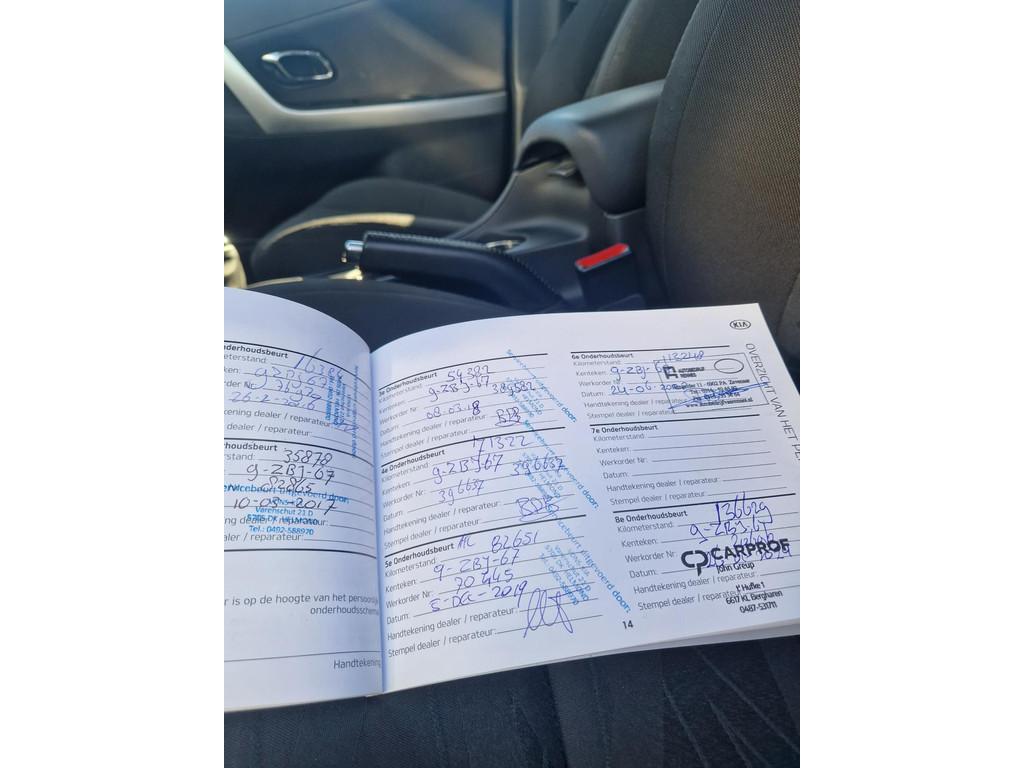 nderhoudsbeurt
eterstand:
ken:
der Nr:
26-2-2016
ekening dealer / reparateur:
dealer / reparateur:
houdsbeurt
stand: 35878
9-ZBJ-67
10-05-2017
Varenschut 21 D
5705 DK HELMOND
Tel.: 0492-588970
ng dealer / reparateur:
aler / reparateur:
r is op de hoogte van het persoonlijk
onderhoudsschema
Handtekening
3e Onderhoudsbeurt
Kilometerstand: 54382
Kenteken: 9-ZBJ-67
Werkorder Nr: 389582
Datum: 08.03.18
Handtekening dealer / reparateur:
Stempel dealer / reparateur:
4e Onderhoudsbeurt
Kilometerstand: 71322
Kenteken: 9-ZBJ-67
Werkorder Nr: 396637 396637
Datum:
Handtekening dealer / reparateur:
Stempel dealer / reparateur:
5e Onderhoudsbeurt
Kilometerstand: 82651
Kenteken: 9-ZBJ-67
Werkorder Nr: 70445
Datum: 5-DEC-2019
Handtekening dealer / reparateur:
Stempel dealer / reparateur:
Servicebeurt uitgevoerd door:
KIA
OVERZICHT VAN HET PE
6e Onderhoudsbeurt
Kilometerstand: 113248
Kenteken: 9-ZBJ-67
Werkorder Nr:
Datum:
Handtekening dealer / reparateur:
Stempel dealer / reparateur:
AUTOBEDRIJF
7e Onderhoudsbeurt
Kilometerstand:
Kenteken:
Werkorder Nr:
Datum:
Handtekening dealer / reparateur:
Stempel dealer / reparateur:
8e Onderhoudsbeurt
Kilometerstand: 136629
Kenteken: 9-ZBJ-67
Werkorder Nr:
Datum:
Handtekening dealer / reparateur:
Stempel dealer / reparateur:
CARPROF
John Greup
't Hufke 1
6617 KL Bergharen
0487-531711
14